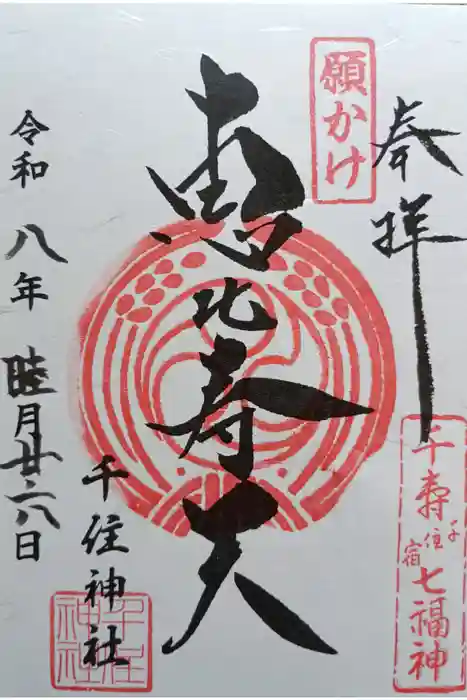 奉拝
願かけ
恵比寿天
千寿七福神
千住宿
令和八年睦月廿六日
千住神社
千住
神社